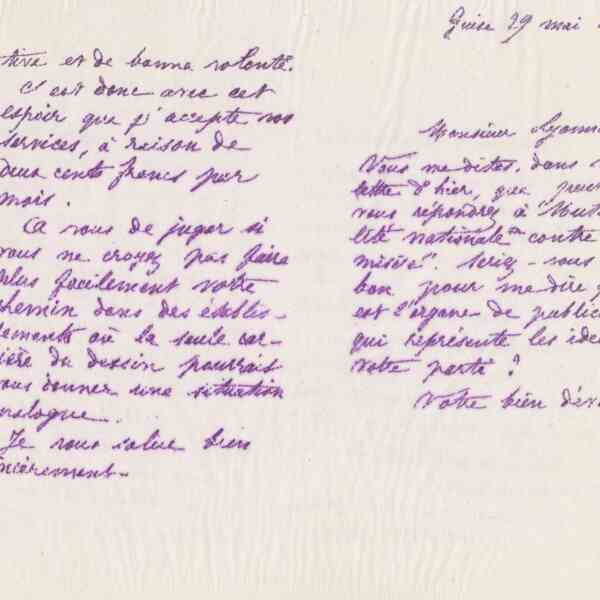 tive et de bonne volonté.
C'est donc avec cet
espoir que j'accepte vos
services, à raison de
deux cents francs par
mois.
A vous de juger si
vous ne croyez pas faire
plus facilement votre
chemin dans des établis-
sements où la seule car-
rière du dessin pourrait
vous donner une situation
analogue.
Je vous salue bien
sincèrement.
Guise 29 mai
Monsieur
Vous me dites, dans
lettre d'hier, que
vous répondrez à "Mutua
lité nationale contre
misère". Seriez-vous
bon pour me dire
est l'organe de public
qui représente les idé
votre parti ?
Votre bien dév